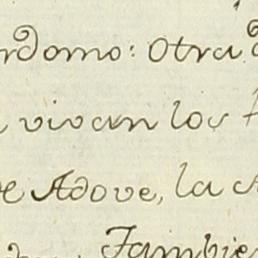 rdomo: Otra
vivan los
e Adove, la
Tambie